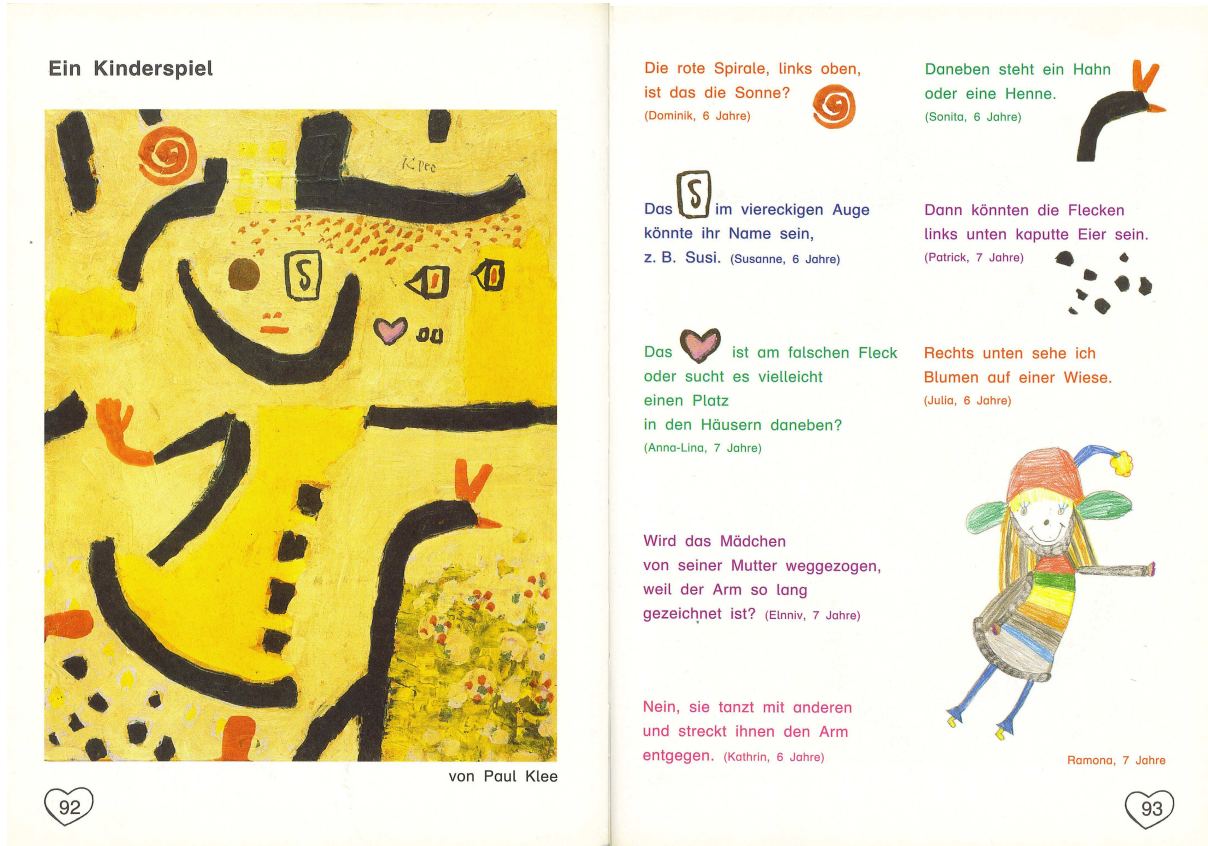 Ein Kinderspiel
Klee
S
von Paul Klee
92
Die rote Spirale, links oben,
ist das die Sonne?
(Dominik, 6 Jahre)
Das S im viereckigen Auge
könnte ihr Name sein,
z. B. Susi. (Susanne, 6 Jahre)
Das ist am falschen Fleck
oder sucht es vielleicht
einen Platz
in den Häusern daneben?
(Anna-Lina, 7 Jahre)
Wird das Mädchen
von seiner Mutter weggezogen,
weil der Arm so lang
gezeichnet ist? (Elnniv, 7 Jahre)
Nein, sie tanzt mit anderen
und streckt ihnen den Arm
entgegen. (Kathrin, 6 Jahre)
Daneben steht ein Hahn
oder eine Henne.
(Sonita, 6 Jahre)
Dann könnten die Flecken
links unten kaputte Eier sein.
(Patrick, 7 Jahre)
Rechts unten sehe ich
Blumen auf einer Wiese.
(Julia, 6 Jahre)
Ramona, 7 Jahre
93